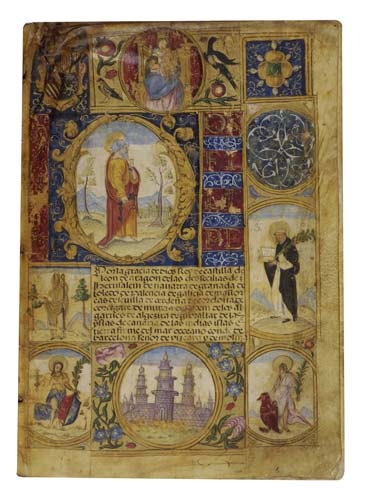 Por la gracia de dios Rey de castilla de
leon de aragon de las dos secilias de
Jherusalem de navarra de granada de
toledo de valencia de galisia de mallorcas
de sevilla de cerdeña de cordova de
corcega de murcia de jaen de los al
garves de algezira de gibraltar de las
yslas de canaria de las indias yslas e
tierra firme del mar oceano conde de
barcelona señor de vizcaya y de molina